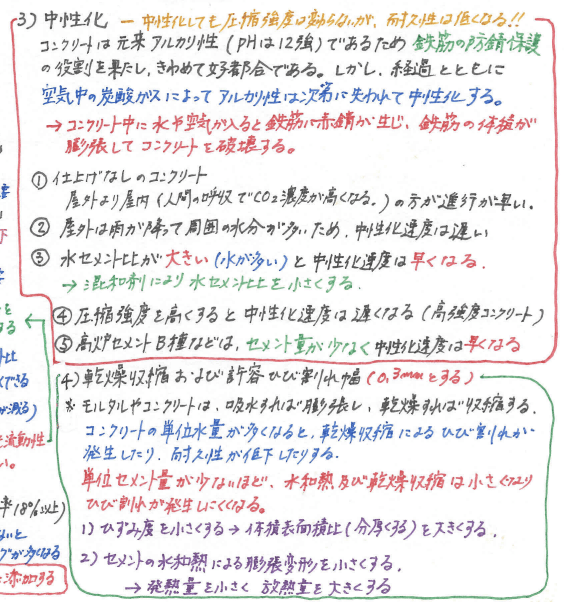 3) 中性化 ー 中性化しても圧縮強度は劣らないが、耐久性は低くなる!!
コンクリートは元来アルカリ性(PHは12強)であるため 鉄筋の防錆保護
の役割を果たし、きわめて好都合である。しかし、経過とともに
空気中の炭酸ガスによってアルカリ性は次第に失われて中性化する。
→コンクリート中に水や空気が入ると鉄筋に赤錆が生じ、鉄筋の体積が
膨張してコンクリートを破壊する。
① 仕上げなしのコンクリート
屋外より屋内(人間の呼収でCO2濃度が高くなる。)の方が進行が早い.
② 屋外は雨が降って周囲の水分が多いため、中性化速度は遅い
③ 水セメント比が大きい(水が多い)と中性化速度は早くなる.
→混和剤により水セメント比を小さくする.
④ 圧縮強度を高くすると中性化速度は遅くなる(高強度コンクリート)
⑤ 高炉セメントB種などは、セメント量が少なく中性化速度は早くなる
4) 乾燥収縮および許容ひび割れ幅(0.3mmとする)
※ モルタルやコンクリートは、吸水すれば膨張し、乾燥すれば収縮する.
コンクリートの単位水量が多くなると、乾燥収縮によるひび割れが
発生したり、耐久性が低下したりする.
単位セメント量が少ないほど、水和熱及び乾燥収縮は小さくなり
ひび割れが発生しにくくなる。
1) ひずみ度を小さくする→体積表面積比(分厚くする)を大きくする.
2) セメントの水和熱による膨張変形を小さくする.
→ 発熱量を小さく 放熱量を大きくする
下
を
する
比
くできる
が減る)
流動性
い。
率18%以上)
ないと
グが多くなる
添加する